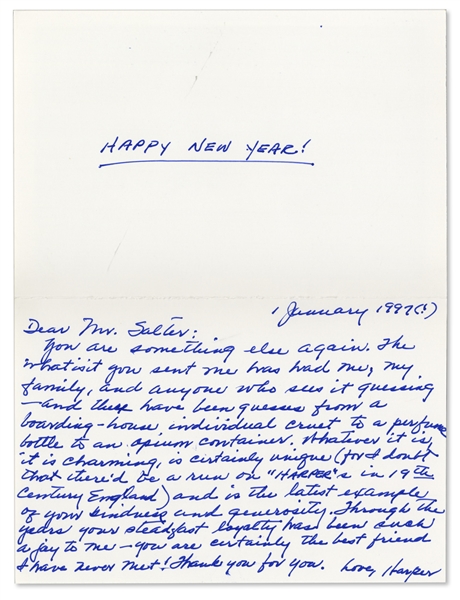 HAPPY NEW YEAR!
1 January 1997(!)
Dear Mr. Salter:
You are something else again. The
whatsit you sent me has had me, my
family, and anyone who sees it guessing
—and there have been guesses from a
boarding-house individual cruet to a perfume
bottle to an opium container. Whatever it is,
it is charming, is certainly unique (for I doubt
that there'd be a run on "HARPER"s in 19th
century England) and is the latest example
of your kindness and generosity. Through the
years your steadfast loyalty has been such
a joy to me — you are certainly the best friend
I have never met! Thank you for you. Love, Harper